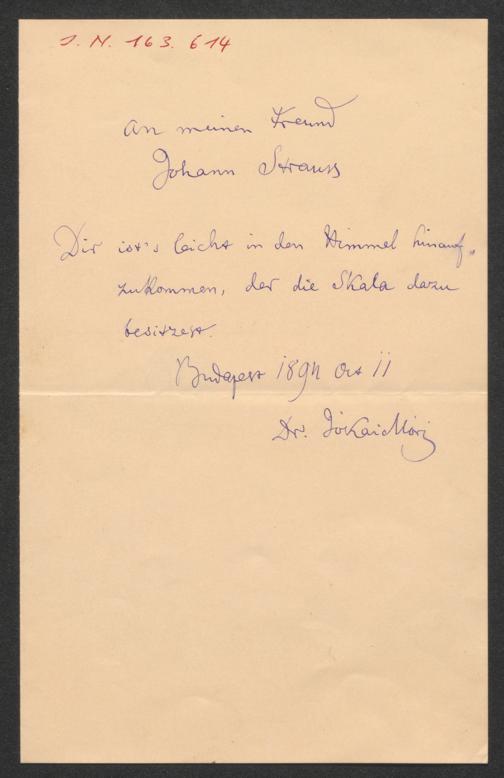 I. N. 163.614
An meinen Freund
Johann Strauss
Dir ist's leicht in den Himmel hinauf-
zukommen, der die Skala dazu
besitzest.
Budapest 1894 Oct 11
Dr. Jókai Mór